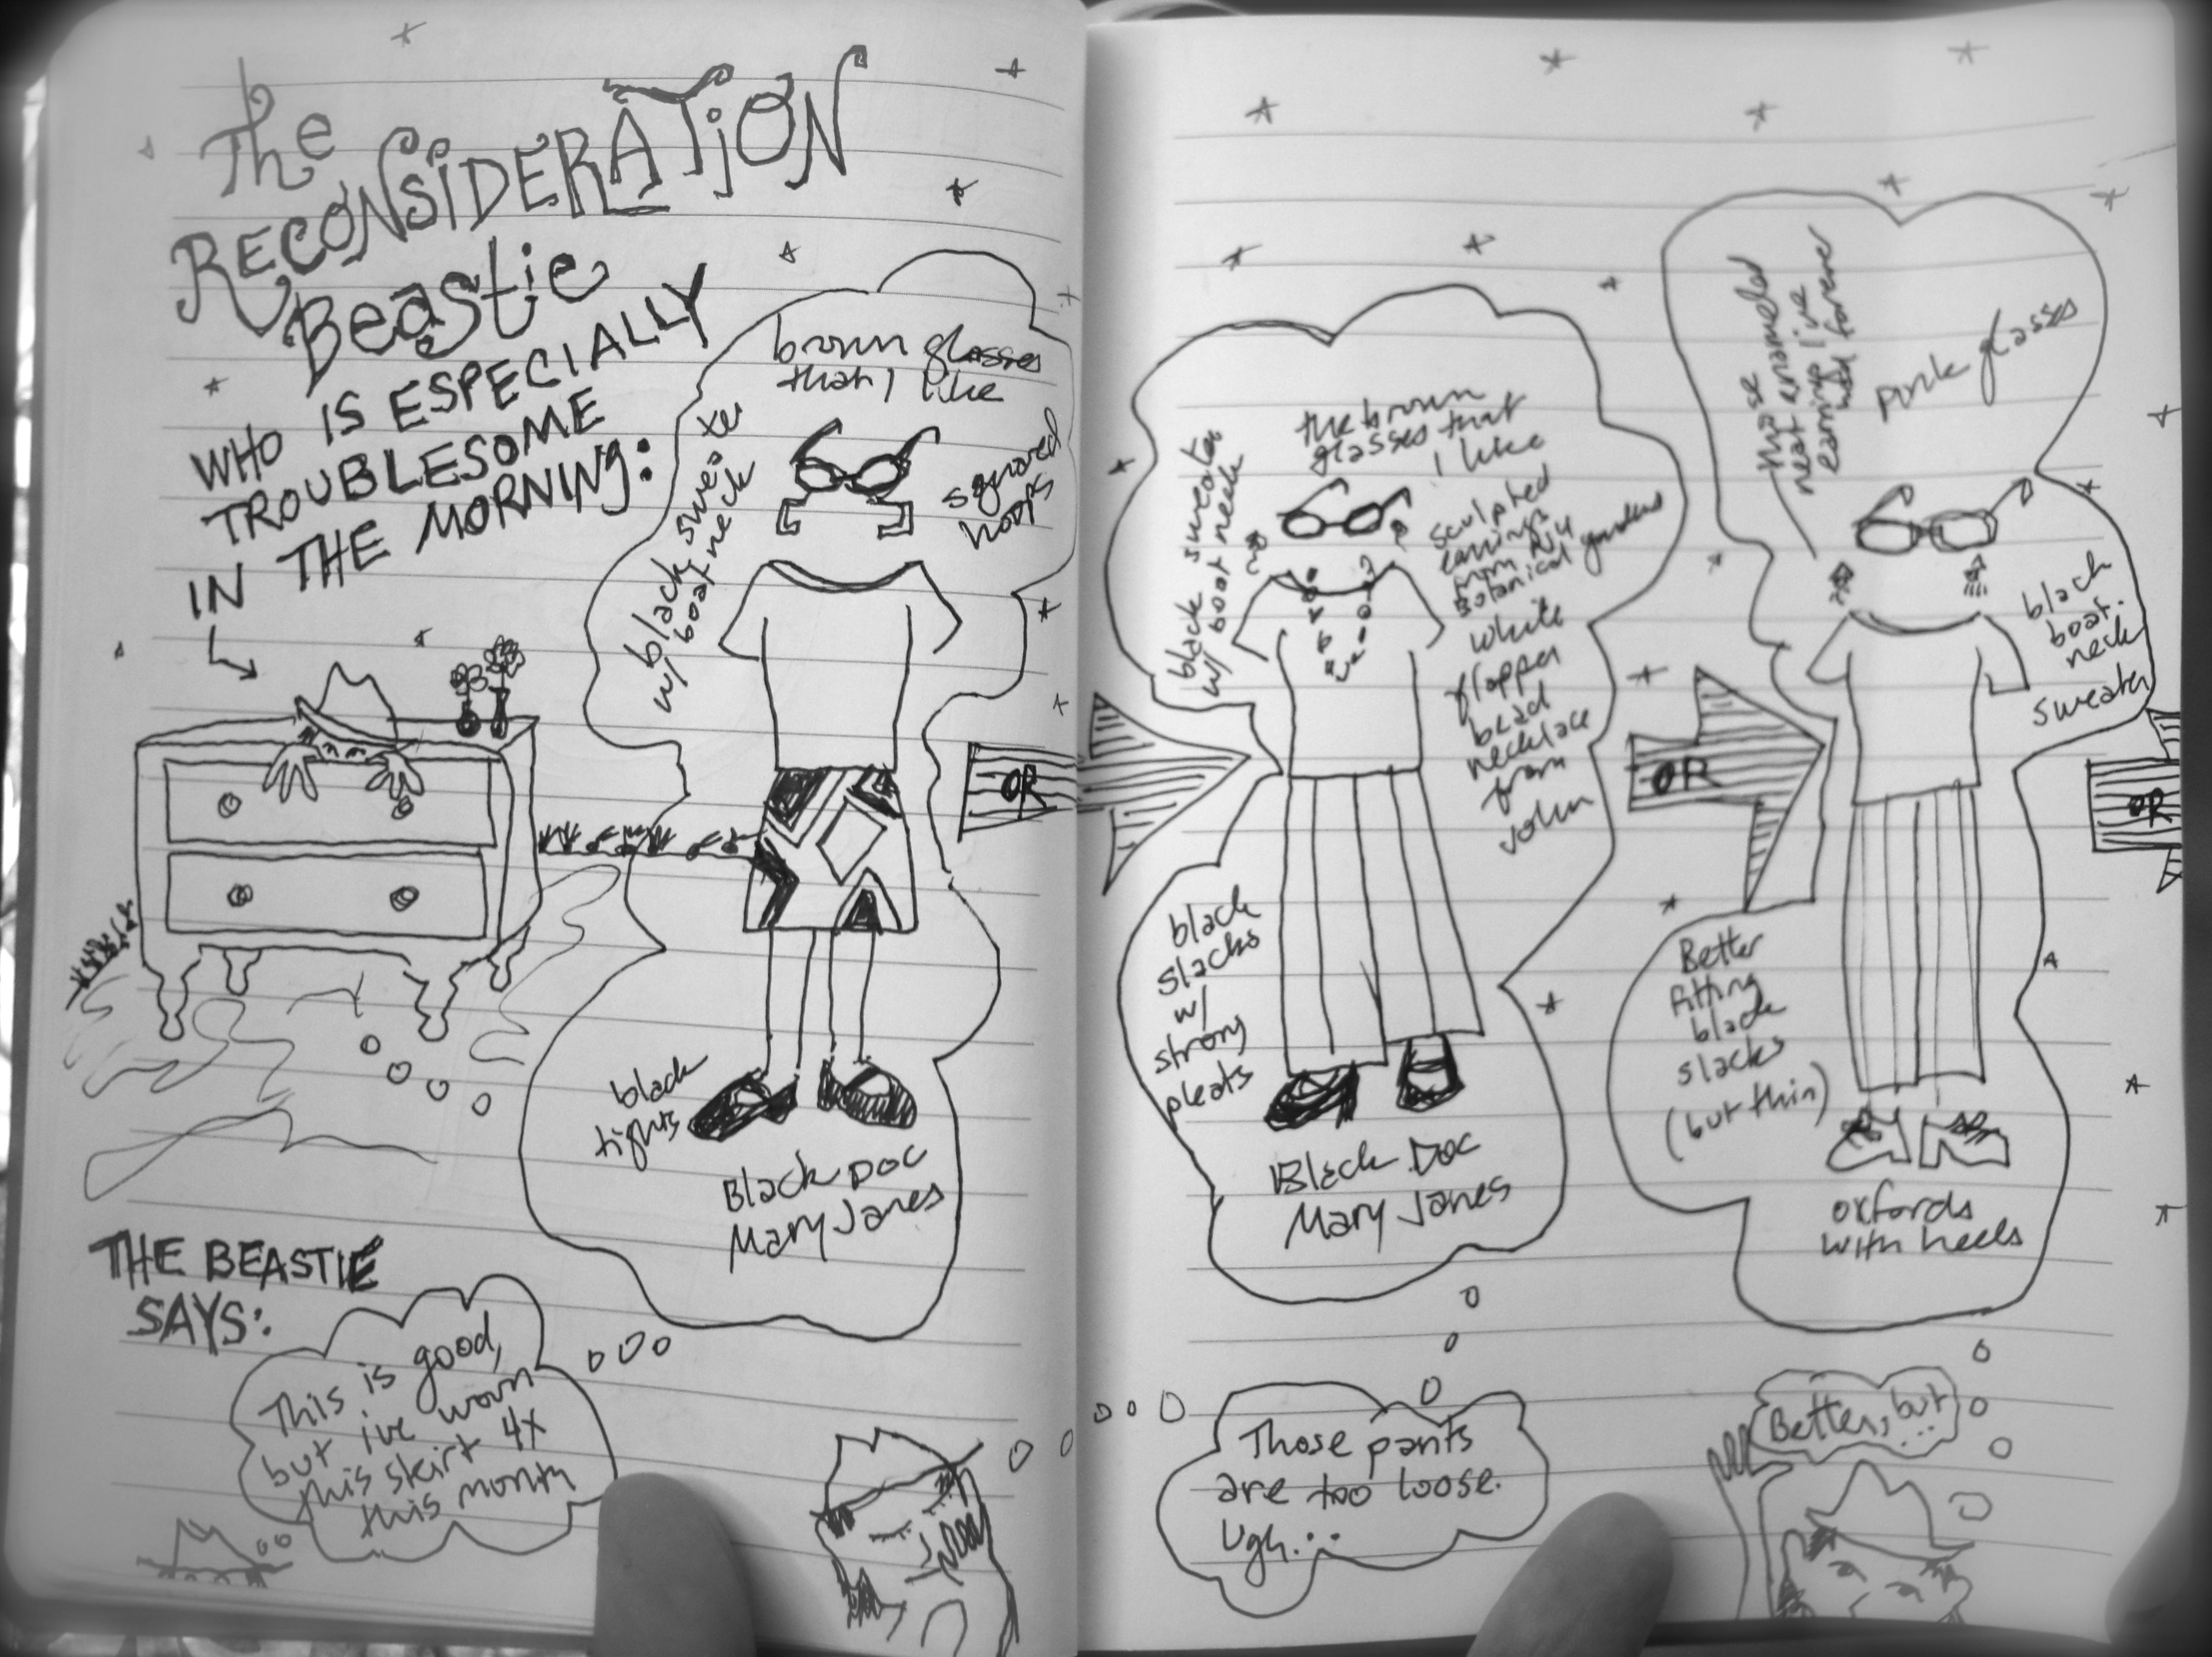 The
RECONSIDERATION
Beastie
WHO IS ESPECIALLY
TROUBLESOME
IN THE MORNING:
brown glasses
that I like
squared
hoops
black sweater
w/ boat neck
black
tights
Black Doc
Mary Janes
THE BEASTIE
SAYS:
This is good,
but i've worn
this skirt 4x
this month
OR
the brown
glasses that
I like
black sweater
w/ boat neck
sculpted
earrings
from NY
Botanical gardens
white
flapper
bead
necklace
from
John
black
slacks
w/
strong
pleats
Black Doc
Mary Janes
Those pants
are too loose.
Ugh...
OR
those
neat enameled
earrings I've
had forever
pink glasses
black
boat
neck
sweater
Better
fitting
black
slacks
(but thin)
oxfords
with heels
Better, but
...
OR